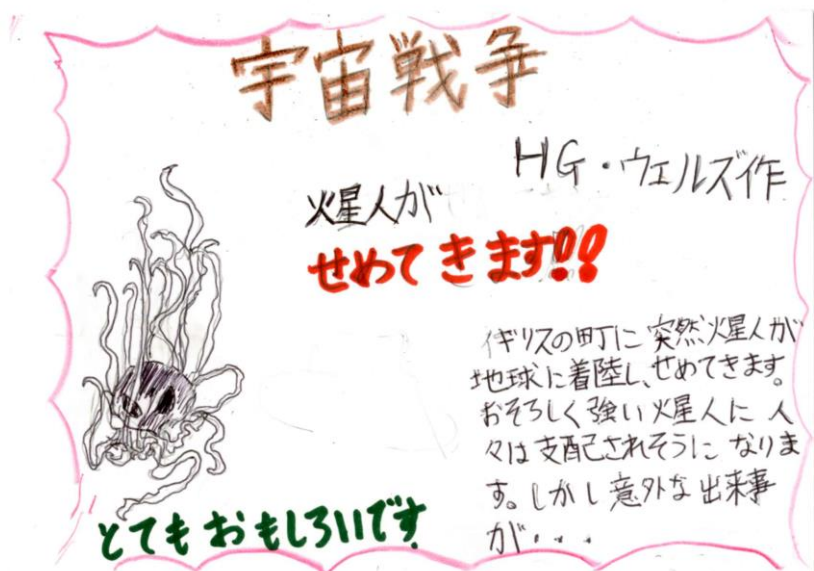 宇宙戦争
HG・ウェルズ作
火星人が
せめてきます!!
イギリスの町に突然火星人が
地球に着陸し、せめてきます。
おそろしく強い火星人に人
々は支配されそうになりま
す。しかし意外な出来事
が・・・
とてもおもしろいです